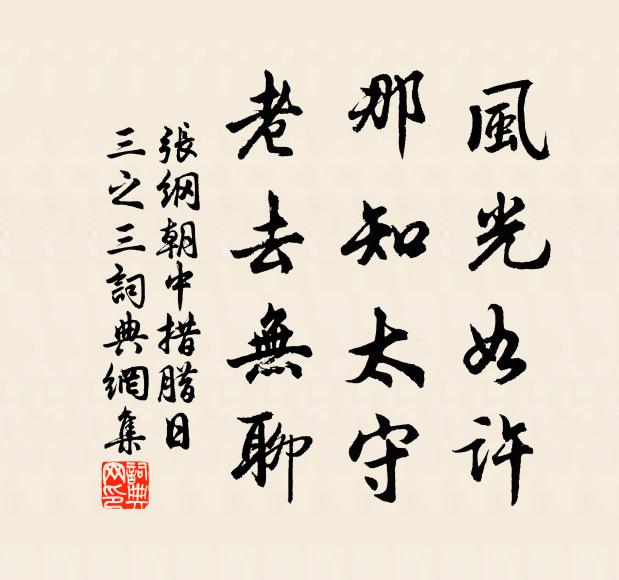 風光如許
那知太守
老去無聊
張綱朝中措腊日
三之三詞典網集
詞典网印